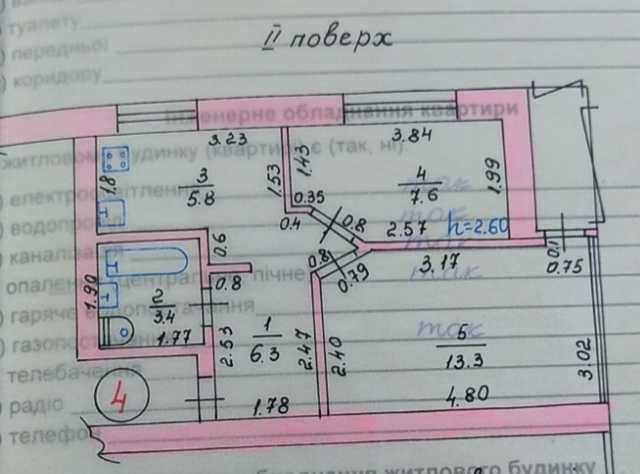 туалету
передньої
коридору
II поверх
інженерне обладнання квартири
3.23
3.84
1.8
3
5.8
1.53
1.43
4
7.6
1.99
0.35
0.4
0.8
2.57
h=2.60
0.6
0.8
0.8
0.79
3.17
0.1
0.75
1.90
2
3.4
1.77
2.53
1
6.3
2.47
2.40
5
13.3
3.02
4
1.78
4.80
водопро
каналізація
опалення
гаряче водопостачання
газопостачання
телебачення
радіо
телефон
так
так
так
так
житлового будинку